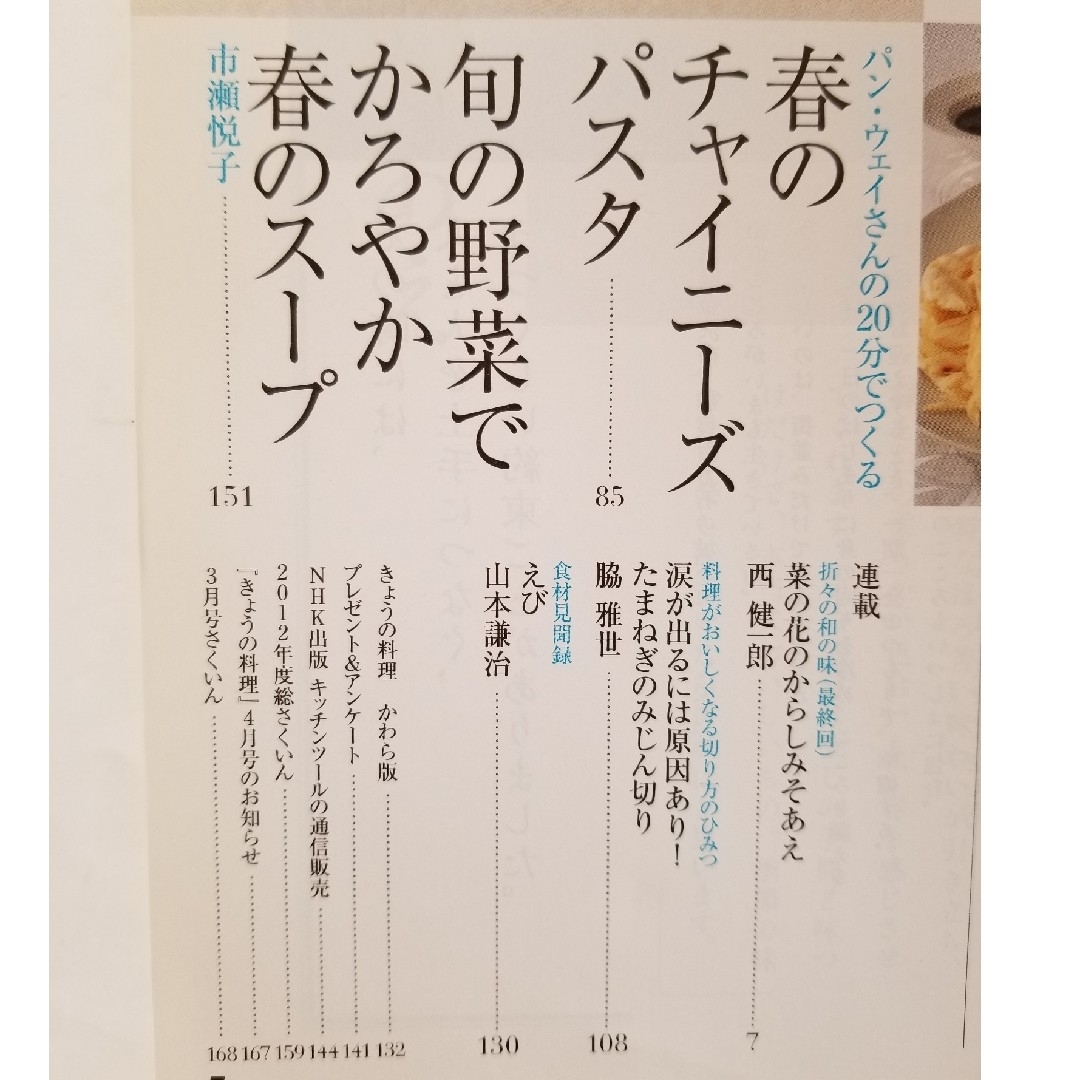 パン・ウェイさんの20分でつくる
春の
チャイニーズ
パスタ
85
旬の野菜で
かろやか
春のスープ
市瀬悦子
151
連載
折々の和の味(最終回)
菜の花のからしみそあえ
西 健一郎
7
料理がおいしくなる切り方のひみつ
涙が出るには原因あり!
たまねぎのみじん切り
脇 雅世
108
食材見聞録
えび
山本謙治
130
きょうの料理 かわら版
132
プレゼント&アンケート
141
NHK出版 キッチンツールの通信販売
144
2012年度総さくいん
159
『きょうの料理』4月号のお知らせ
167
3月号さくいん
168